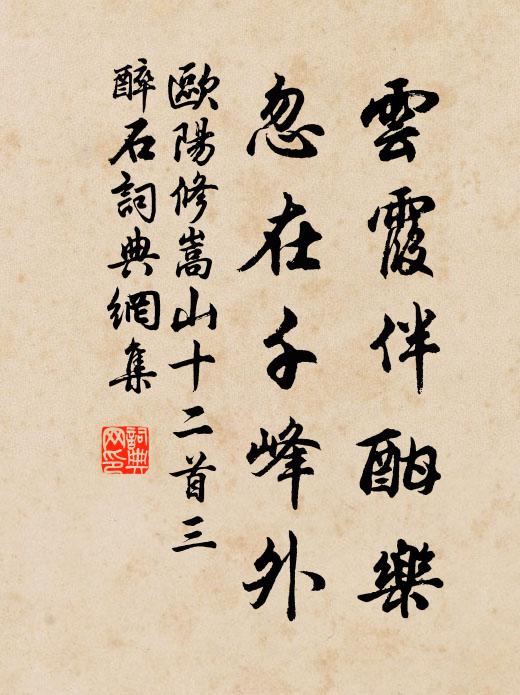 雲霞伴酣樂
忽在千峰外
歐陽修嵩山十二首三
醉石詞典網集
詞典
网印